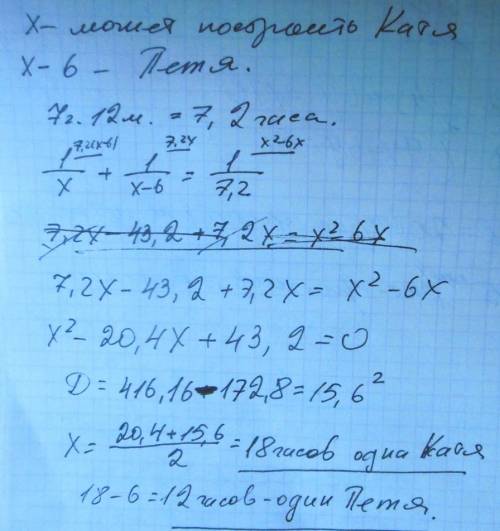 x – может построить Катя
x – 6 – Петя.
7г. 12м. = 7,2 часа.
1/x + 1/(x-6) = 1/7,2
7,2(x-6) 7,2x x²-6x
7,2x – 43,2 + 7,2x = x² – 6x
7,2x – 43,2 + 7,2x = x² – 6x
x² – 20,4x + 43,2 = 0
D = 416,16 – 172,8 = 15,6²
x = (20,4+15,6)/2 = 18 часов одна Катя
18 – 6 = 12 часов – один Петя.